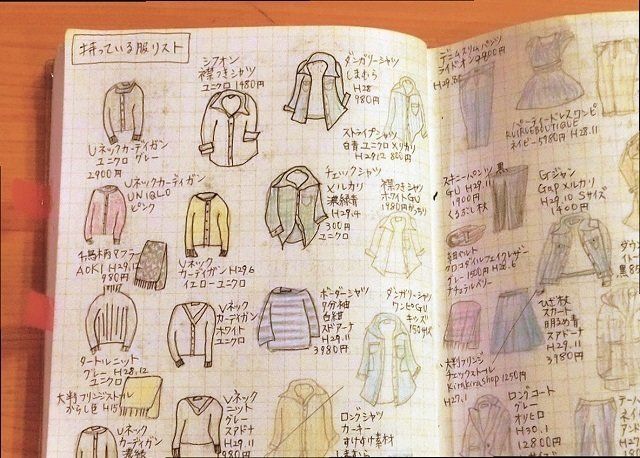 持っている服リスト
Uネックカーディガン
ユニクロ グレー
2900円
シフォン
襟つきシャツ
ユニクロ 1480円
ダンガリーシャツ
しまむら
H28
980円
Uネックカーディガン
UNIQLO
ピンク
Uネック
カーディガン H29.6
イエロー ユニクロ
チェックシャツ
メルカリ
濃緑青
H29.4
300円
ユニクロ
ストライプシャツ
白青 ユニクロ メルカリ
H29.12 800円
襟つきシャツ
ホワイト GU
千鳥柄マフラー
AOKI H29.12
980円
タートルニット
グレー H28.12
ユニクロ
Vネック
カーディガン
ホワイト
ユニクロ
ボーダーシャツ
7分袖
白紺
スドアーナ
H29.11
3980円
ダンガリーシャツ
ワンピ GU
キッズ
150サイズ
大判フリンジストール
からし色 H15
Vネック
ニット
グレー
スアドナ
H29.11
9800円
Uネック
カーディガン
濃緑
ロングシャツ
カーキー
すけすけ素材
しまむら
デニムスリムパンツ
ライトオン 2900円
H29.8
パーティードレスワンピ
RUIRUEBOUTIQUE
ネイビー 5980円 H28.11
スキニーパンツ 黒
GU H29.11
1900円
くるぶし丈
Gジャン
Gap メルカリ
H29.10 Sサイズ
1400円
紐ベルト
クロコダイルフェイクレザー
グレー 1500円 H28.6
ナチュラルベリー
ひざ丈
スカート
明るめ青
スアドナ
H29.11
3980円
大判フリンジ
チェックストール
Kirakirashop 1250円
H27.1
ロングコート
グレー
オリヒロ
H30.1
12800円